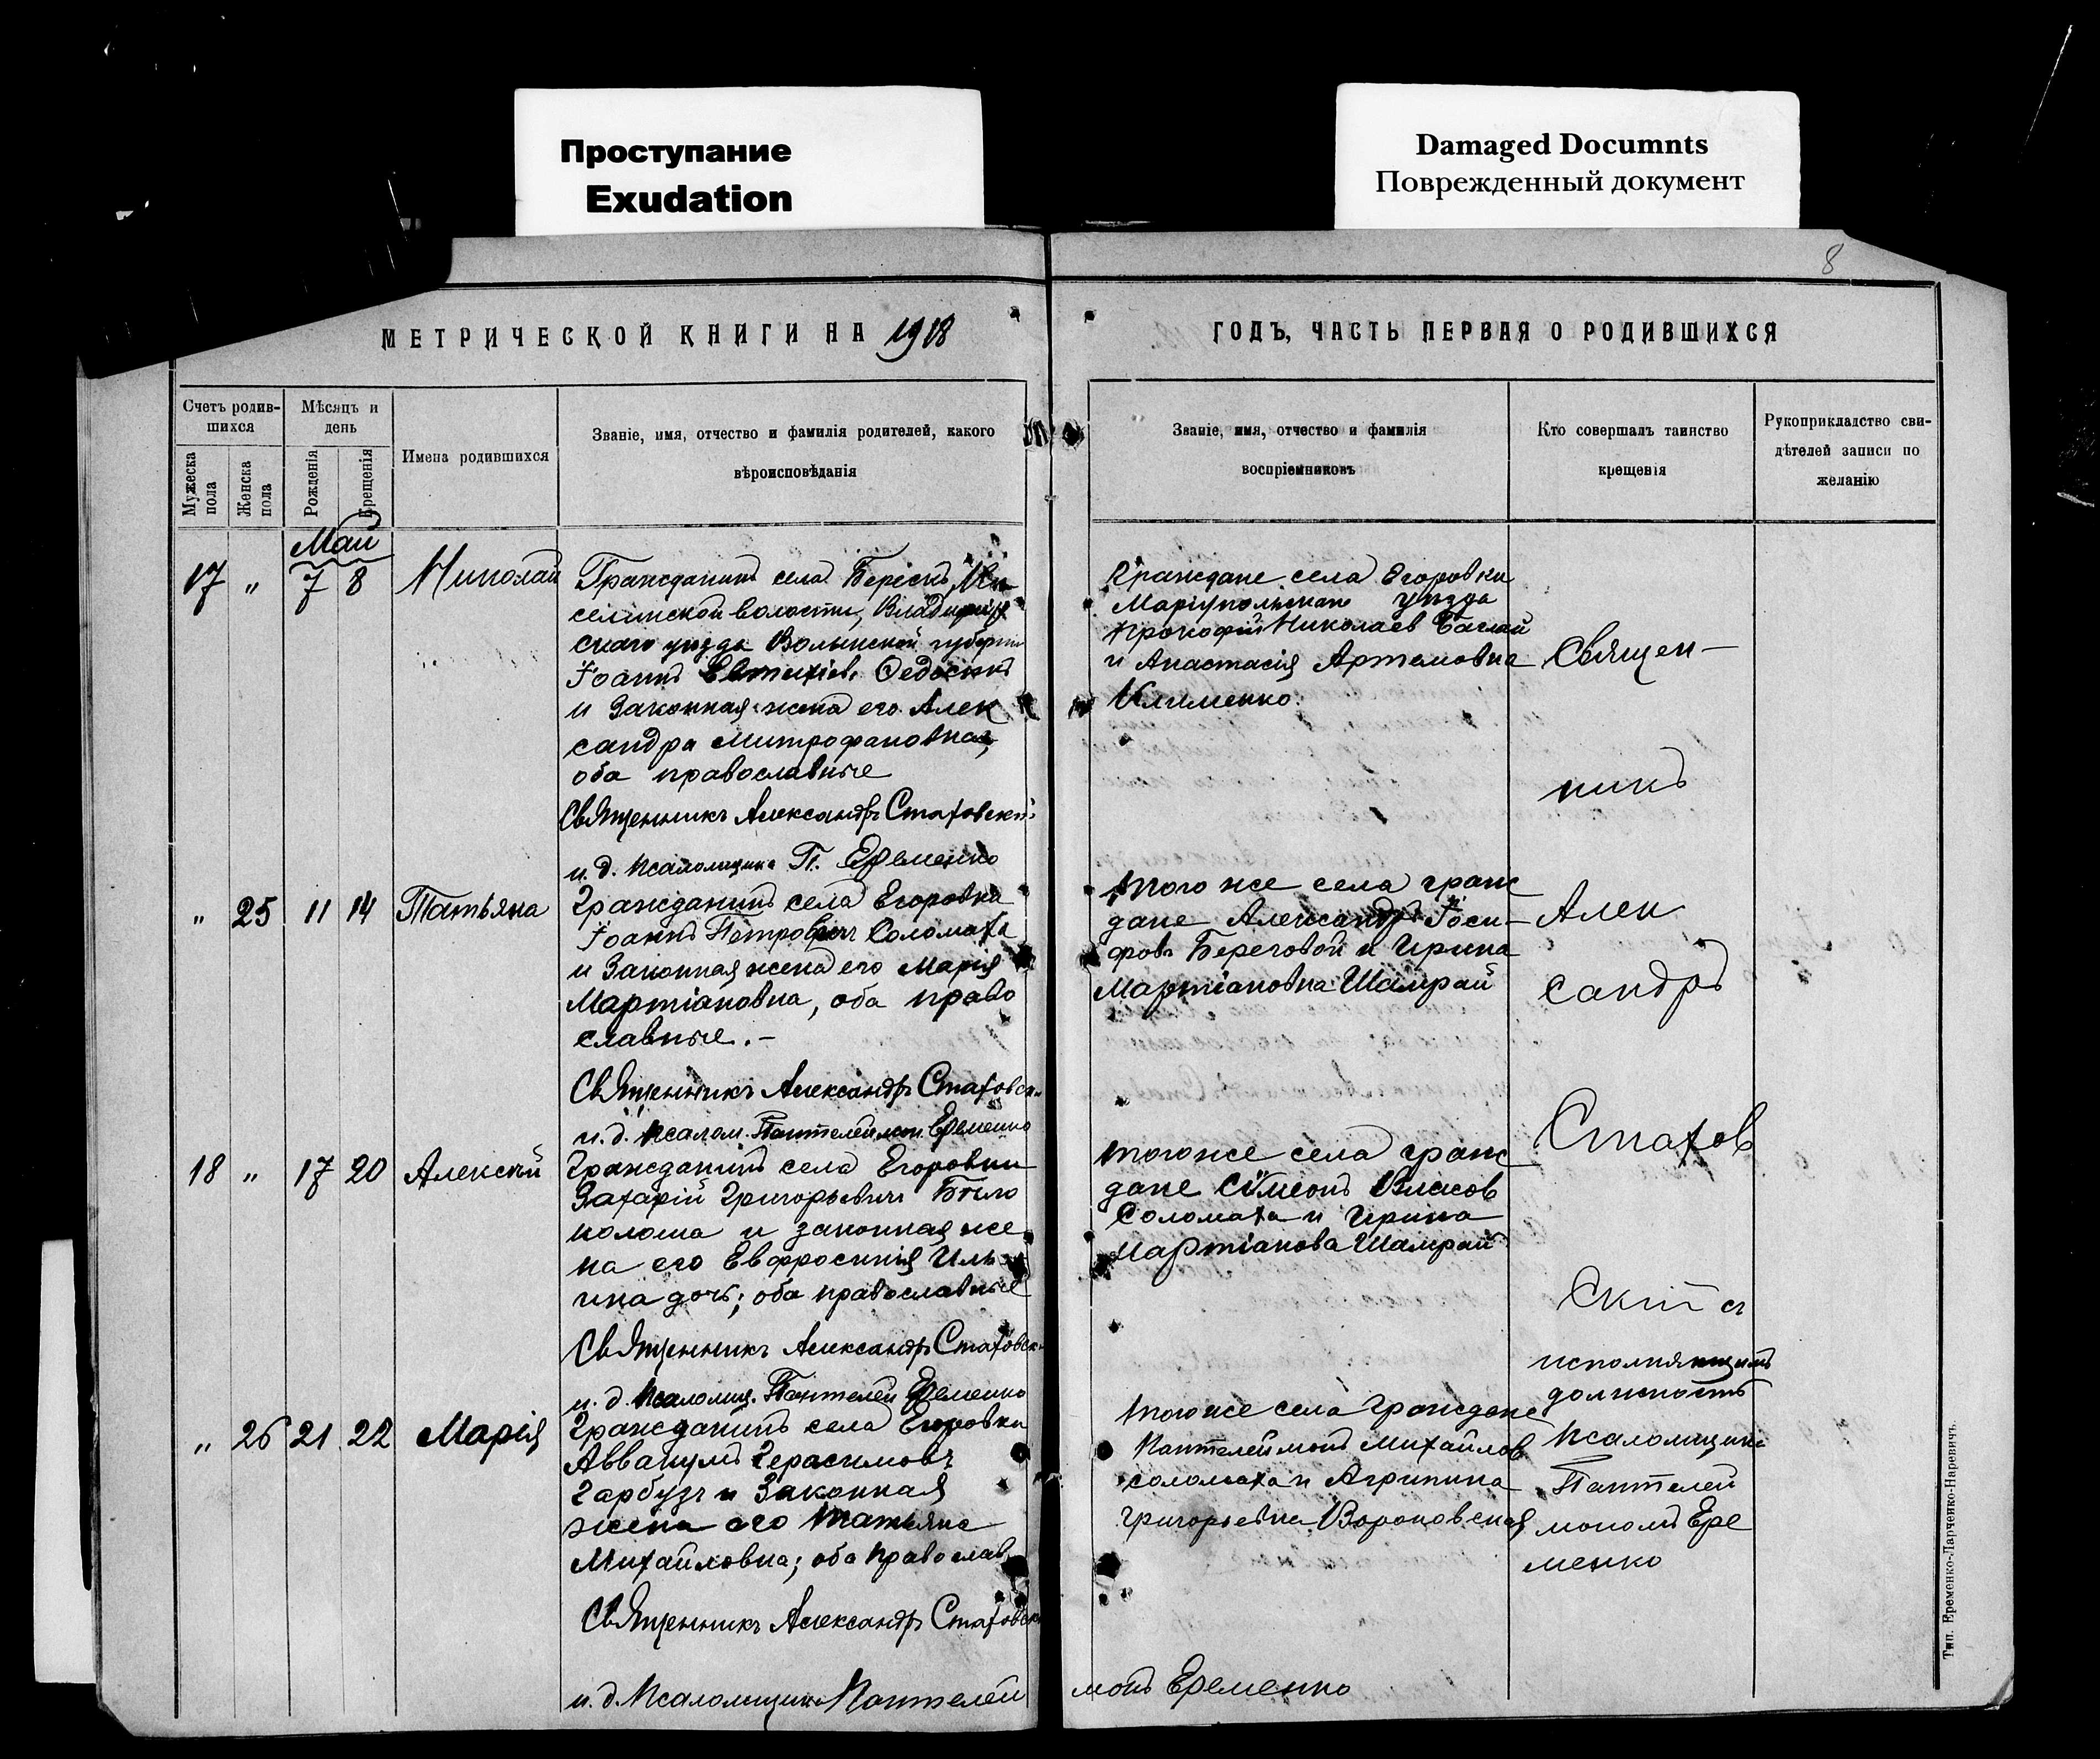 Проступание
Exudation
Damaged Documnts
Поврежденный документ
8
МЕТРИЧЕСКОЙ КНИГИ НА 1918
ГОДЪ, ЧАСТЬ ПЕРВАЯ О РОДИВШИХСЯ
Счетъ родив-
шихся
Мѣсяцъ и
день
Мужеска
пола
Женска
пола
Рожденія
Крещенія
Имена родившихся
Званіе, имя, отчество и фамилія родителей, какого
вѣроисповѣданія
Званіе, имя, отчество и фамилія
воспріемниковъ
Кто совершалъ таинство
крещенія
Рукоприкладство сви-
дѣтелей записи по
желанію
Май
17 „ 7 8 Николай
Гражданинъ села
волости,
скаго уѣзда Волынской губерніи
Іоаннъ Евтихіев.
и законная жена его Алек
сандра Митрофановна,
оба православные
Священникъ Александръ Стаховскій
и. д. псаломщика П. Еременко
Граждане села Егоровки
Маріупольскаго уѣзда
Прокофій Николаев Баглай
и Анастасія Артемовна
Клименко.
„ 25 11 14 Татьяна
Гражданинъ села Егоровка
Іоаннъ Петровичъ Соломаха
и законная жена его Марія
Мартіановна, оба право
славные.-
Священникъ Александръ Стаховск
и. д. псалом. Пантелеймон Еременко
того же села граж
дане Александръ Іоси-
фовъ Береговой и Ирина
Мартіановна Шамрай
18 „ 17 20 Алексѣй
Гражданинъ села Егоровки
Захарій Григорьевичъ Бѣло
колоша и законная же
на его Евфросинія Иль
ина дочь; оба православные
Священникъ Александръ Стаховск
и. д. псаломщ. Пантелей Еременко
того же села граж
дане Сѵмеонъ Власов
Соломаха и Ирина
Мартіанова Шамрай
„ 26 21 22 Марія
Гражданинъ села Егоровки
Аввакумъ Герасимовъ
Гарбузъ и законная
жена его Татьяна
Михайловна; оба православ
Священникъ Александръ Стаховск
и. д. псаломщика Пантелей
монъ Еременко
того же села Граждане
Пантелеймонъ Михайлов
Соломаха и Агрипина
Григорьевна Вороновская
Священ-
никъ
Алек
сандръ
Стахов
скій съ
исполняющимъ
должность
псаломщика
Пантелей
мономъ Ере
менко
Тип. Еременко-Ларченко-Наревичъ.